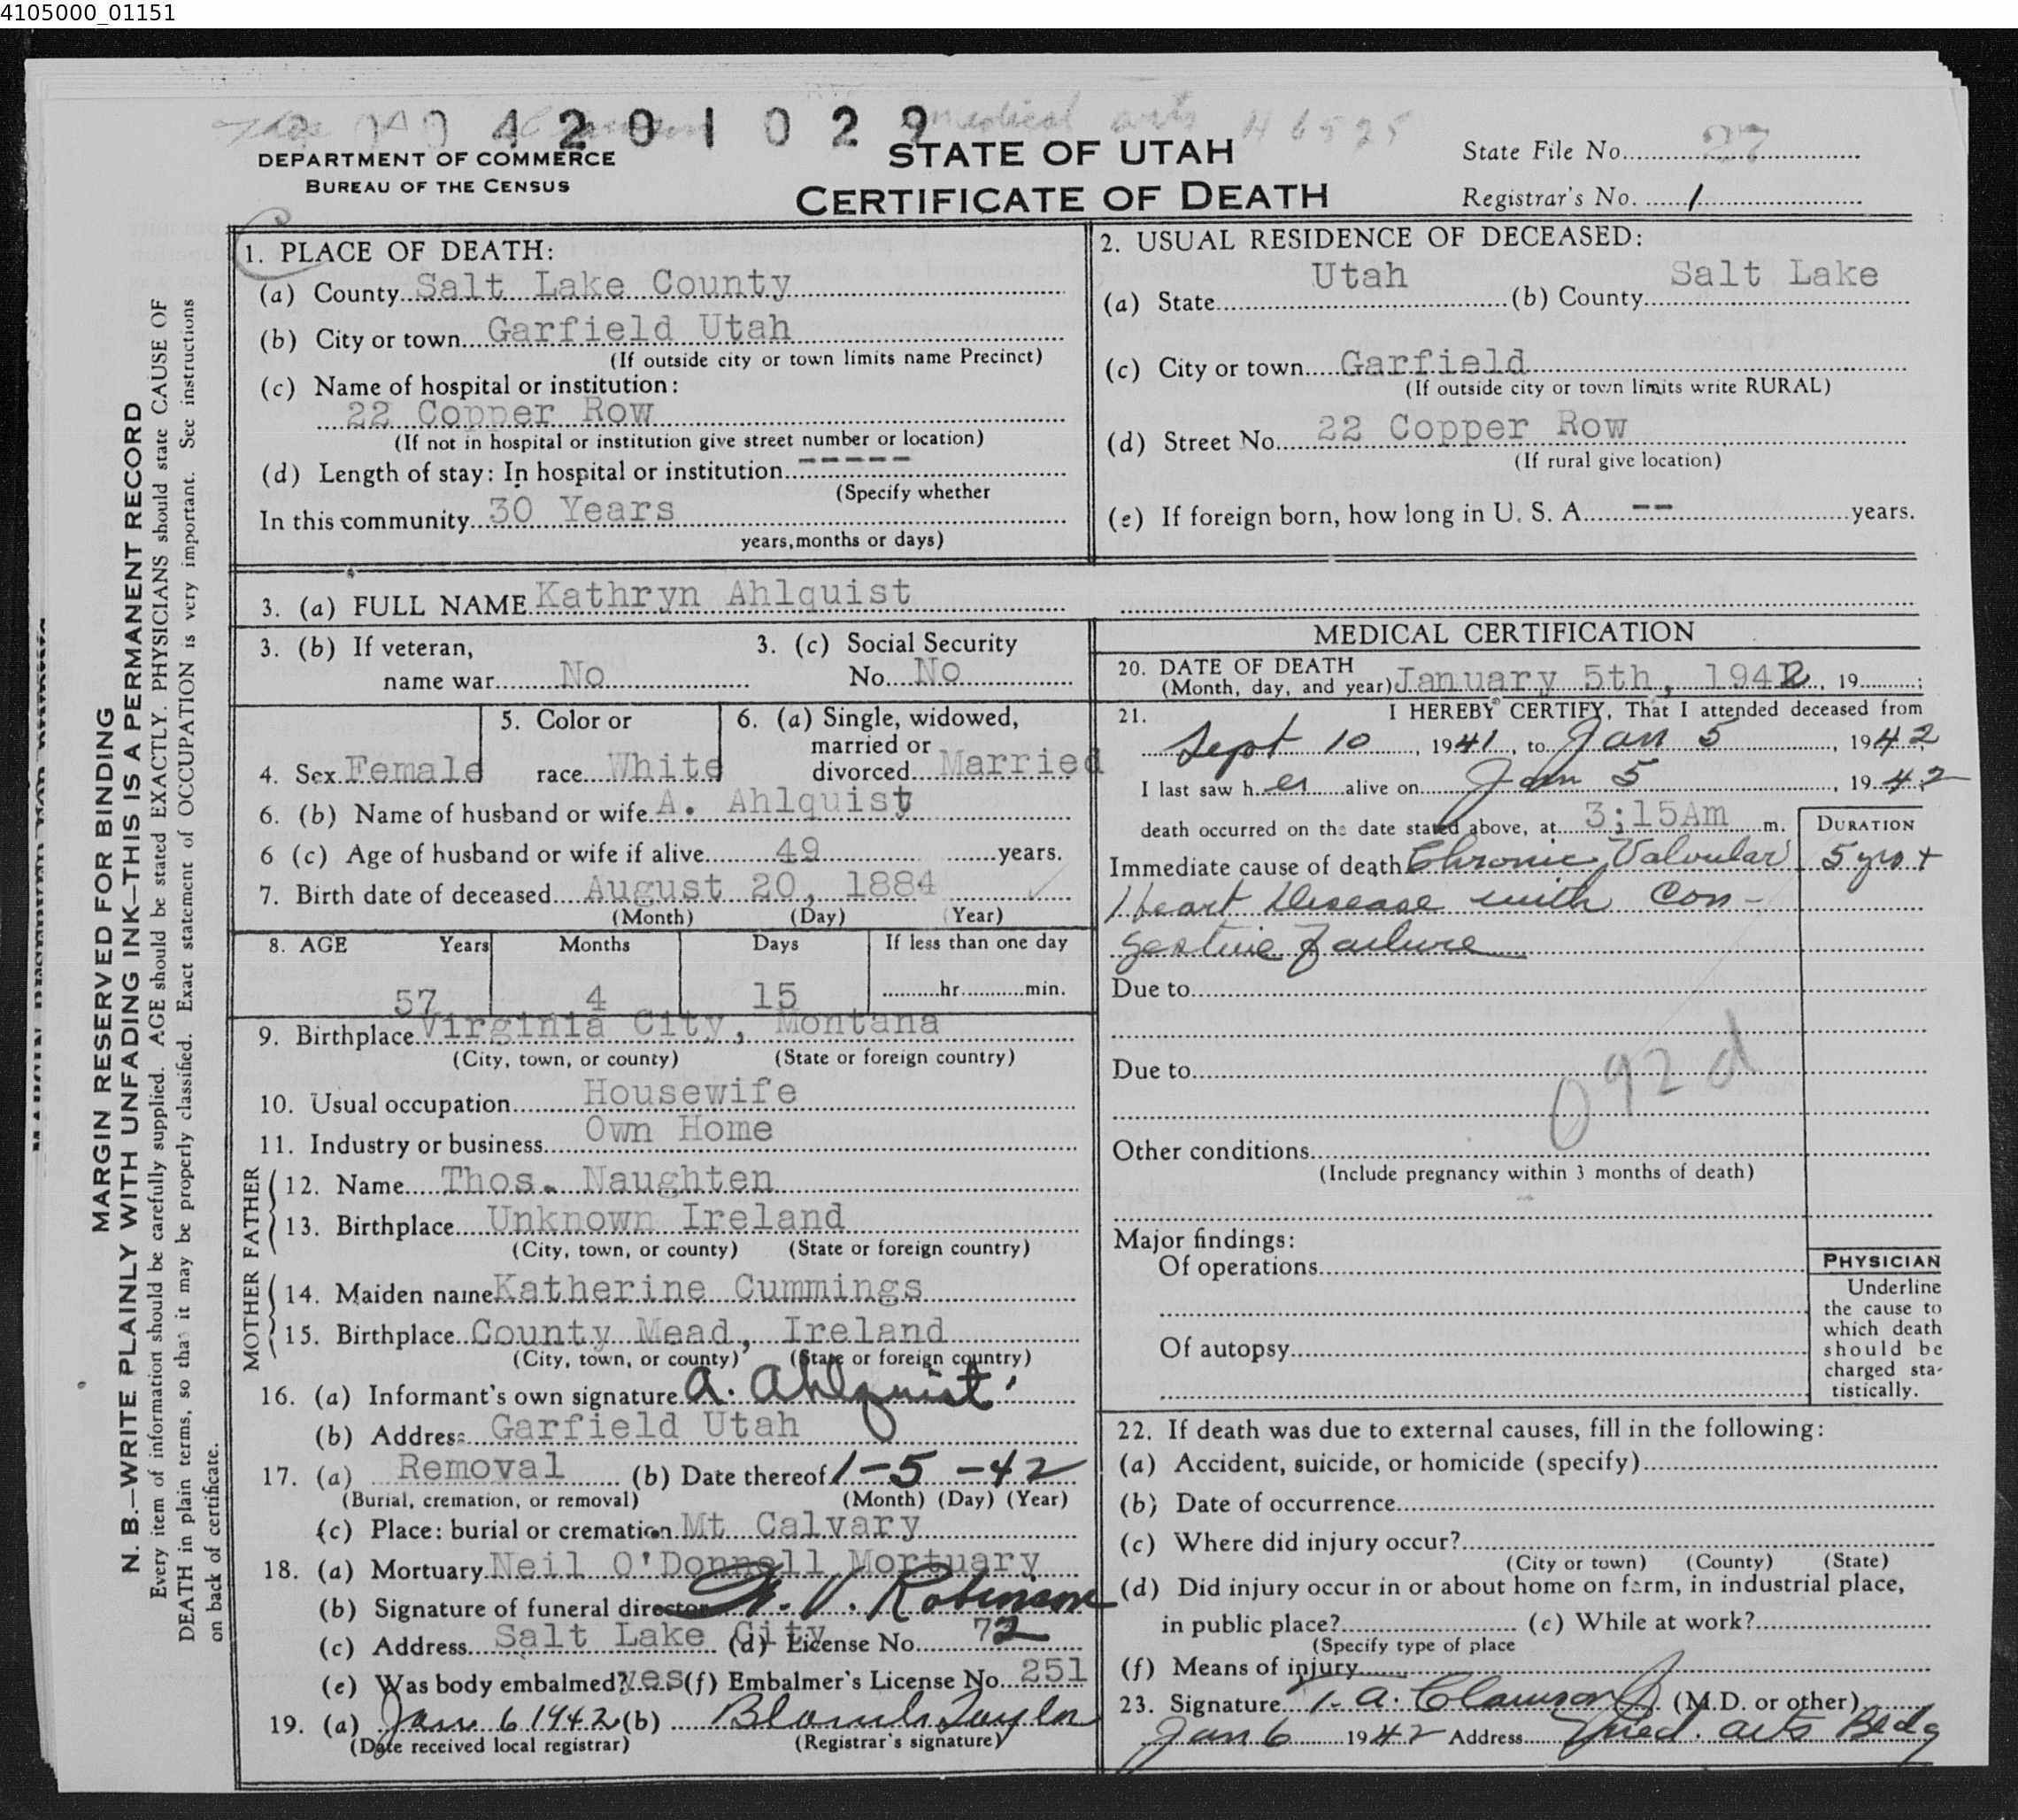 4105000_01151
4 2 0 1 0 2 9
medical arts H 6525
DEPARTMENT OF COMMERCE
BUREAU OF THE CENSUS
STATE OF UTAH
CERTIFICATE OF DEATH
State File No. 27
Registrar's No. 1
MARGIN RESERVED FOR BINDING
N. B.—WRITE PLAINLY WITH UNFADING INK—THIS IS A PERMANENT RECORD
Every item of information should be carefully supplied. AGE should be stated EXACTLY. PHYSICIANS should state CAUSE OF
DEATH in plain terms, so that it may be properly classified. Exact statement of OCCUPATION is very important. See instructions
on back of certificate.
1. PLACE OF DEATH:
(a) County Salt Lake County
(b) City or town Garfield Utah
(If outside city or town limits name Precinct)
(c) Name of hospital or institution:
22 Copper Row
(If not in hospital or institution give street number or location)
(d) Length of stay: In hospital or institution -----
(Specify whether
In this community 30 Years
years, months or days)
2. USUAL RESIDENCE OF DECEASED:
(a) State Utah (b) County Salt Lake
(c) City or town Garfield
(If outside city or town limits write RURAL)
(d) Street No. 22 Copper Row
(If rural give location)
(e) If foreign born, how long in U. S. A. -- years.
3. (a) FULL NAME Kathryn Ahlquist
3. (b) If veteran, 3. (c) Social Security
name war No No. No
4. Sex Female 5. Color or race White 6. (a) Single, widowed, married or divorced Married
6. (b) Name of husband or wife A. Ahlquist
6 (c) Age of husband or wife if alive 49 years.
7. Birth date of deceased August 20, 1884
(Month) (Day) (Year)
8. AGE Years Months Days If less than one day
57 4 15 hr. min.
9. Birthplace Virginia City, Montana
(City, town, or county) (State or foreign country)
10. Usual occupation Housewife
11. Industry or business Own Home
FATHER
12. Name Thos. Naughten
13. Birthplace Unknown Ireland
(City, town, or county) (State or foreign country)
MOTHER
14. Maiden name Katherine Cummings
15. Birthplace County Mead, Ireland
(City, town, or county) (State or foreign country)
16. (a) Informant's own signature A. Ahlquist
(b) Address Garfield Utah
17. (a) Removal (b) Date thereof 1-5-42
(Burial, cremation, or removal) (Month) (Day) (Year)
(c) Place: burial or cremation Mt Calvary
18. (a) Mortuary Neil O'Donnell Mortuary
(b) Signature of funeral director V. Robinson
(c) Address Salt Lake City (d) License No. 72
(e) Was body embalmed? yes (f) Embalmer's License No. 251
19. (a) Jan 6 1942 (b) Taylor
(Date received local registrar) (Registrar's signature)
MEDICAL CERTIFICATION
20. DATE OF DEATH
(Month, day, and year) January 5th, 1942, 19 ;
21. I HEREBY CERTIFY, That I attended deceased from
Sept 10, 1941, to Jan 5, 1942
I last saw her alive on Jan 5, 1942
death occurred on the date stated above, at 3;15Am m.
DURATION
Immediate cause of death Chronic Valvular 5 yrs +
Heart Disease with Con-
gestive failure
Due to
Due to
092d
Other conditions
(Include pregnancy within 3 months of death)
Major findings:
Of operations
Of autopsy
PHYSICIAN
Underline
the cause to
which death
should be
charged sta-
tistically.
22. If death was due to external causes, fill in the following:
(a) Accident, suicide, or homicide (specify)
(b) Date of occurrence
(c) Where did injury occur?
(City or town) (County) (State)
(d) Did injury occur in or about home on farm, in industrial place,
in public place? (e) While at work?
(Specify type of place
(f) Means of injury
23. Signature T. A. Clawson Jr. (M.D. or other)
Jan 6 1942 Address Med. Arts Bldg